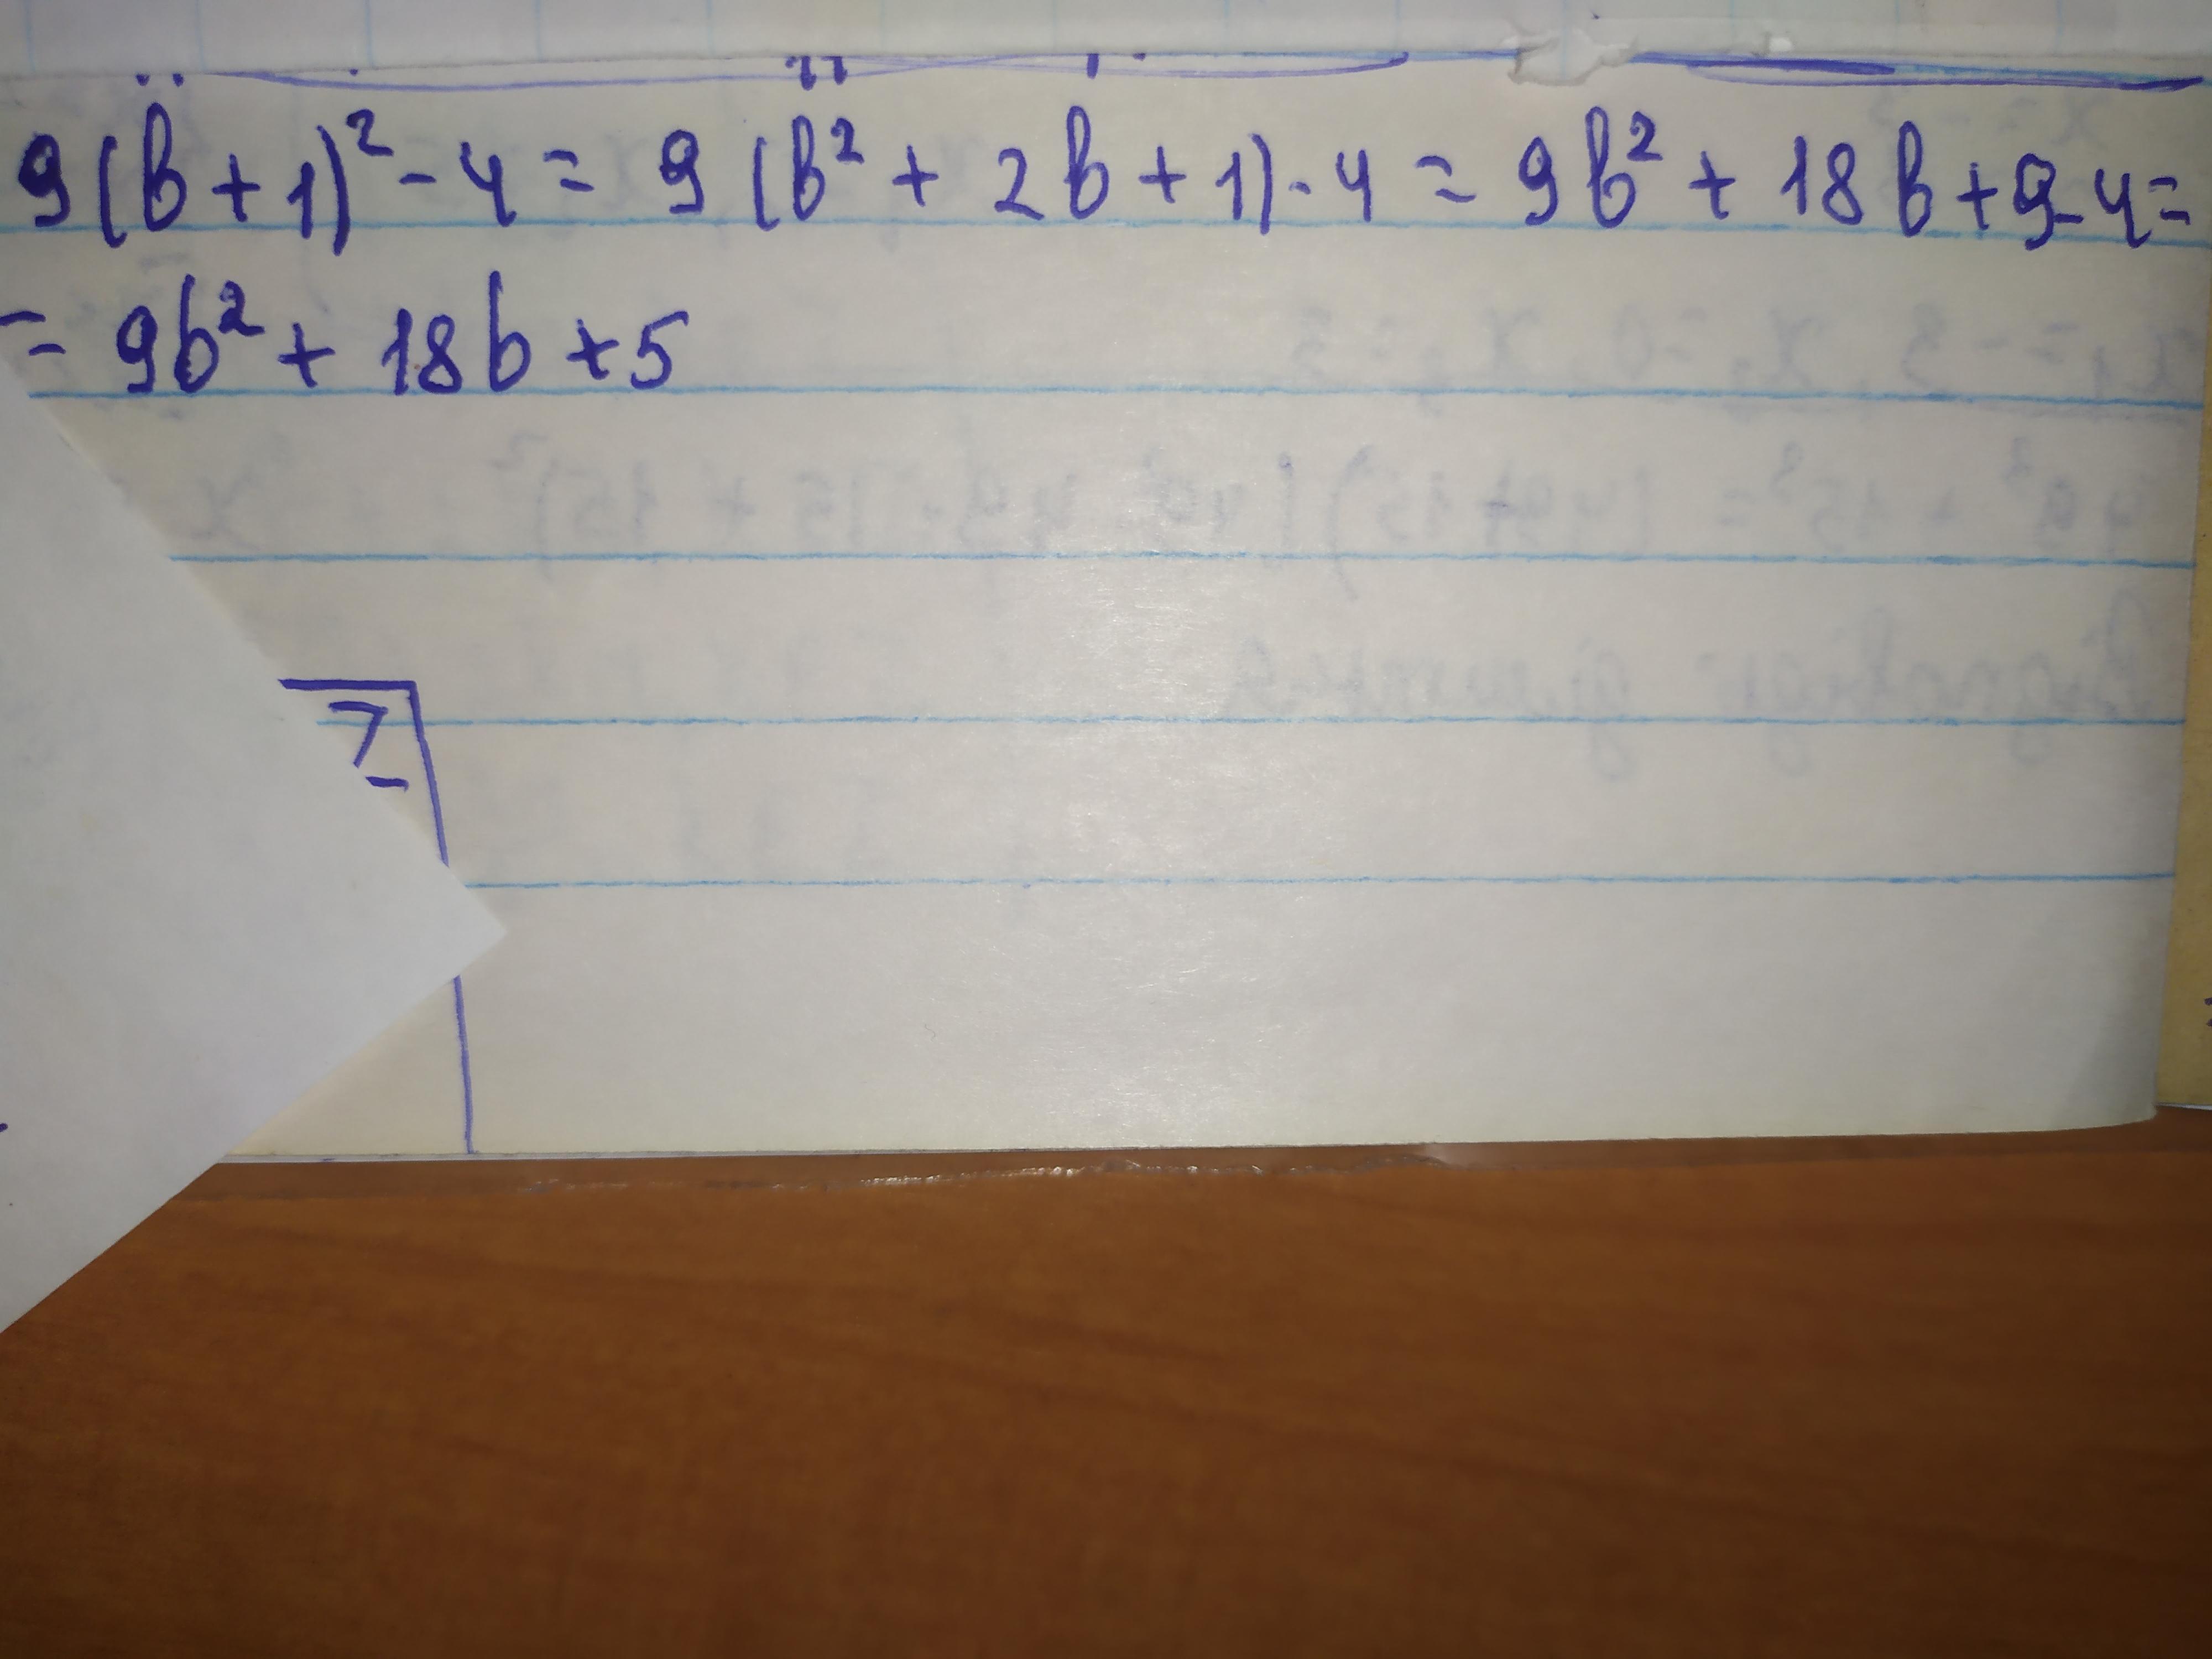 9(b+1)² - 4 = 9(b² + 2b + 1) - 4 = 9b² + 18b + 9 - 4 =
= 9b² + 18b + 5
7